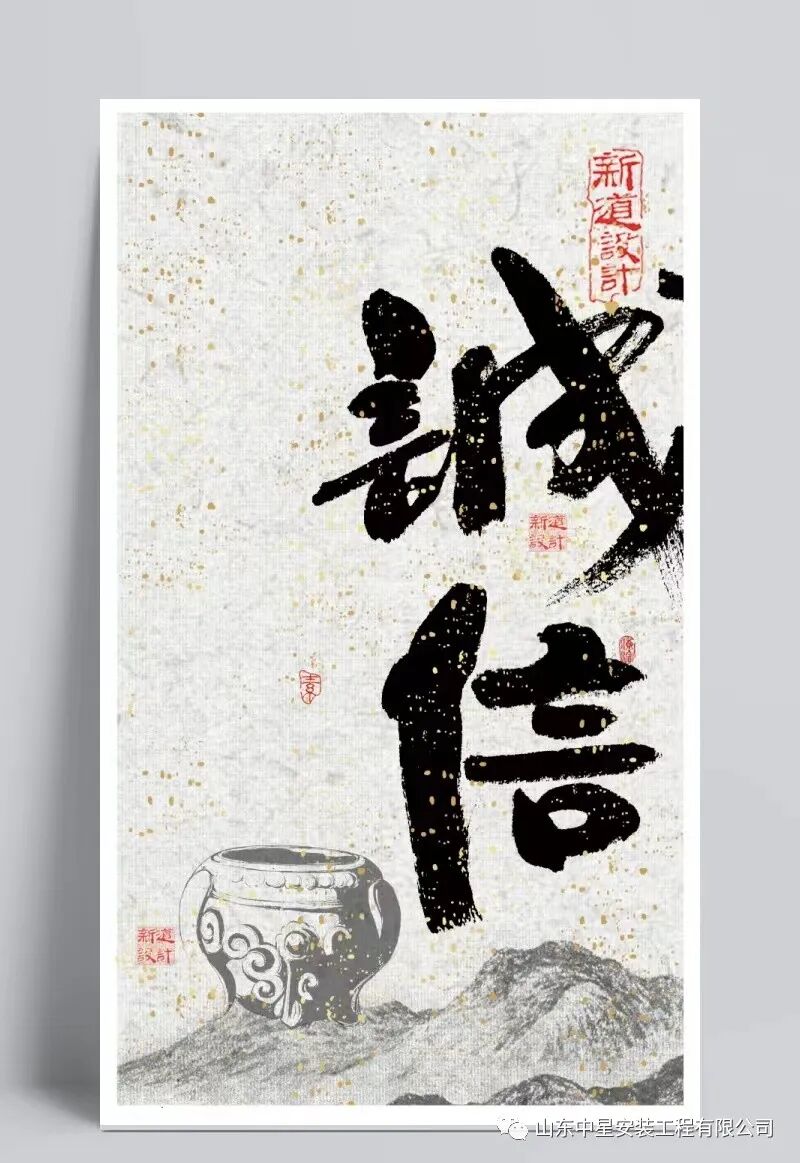 新道設計
誠
信
新道
設計
素
新道
設計
山东中星安装工程有限公司